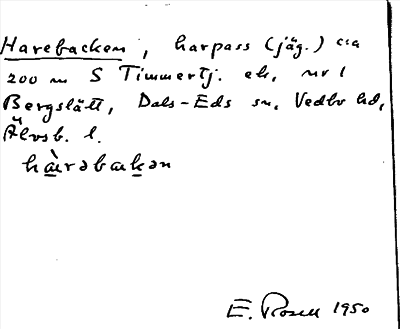 Harebacken, harpass (jäg.) c:a
200 m S Timmertj. ek, nr 1
Bergslätt, Dals-Eds sn, Vedbo hd,
Älvsb. l.
hàrəbakən
E. Rosell 1950